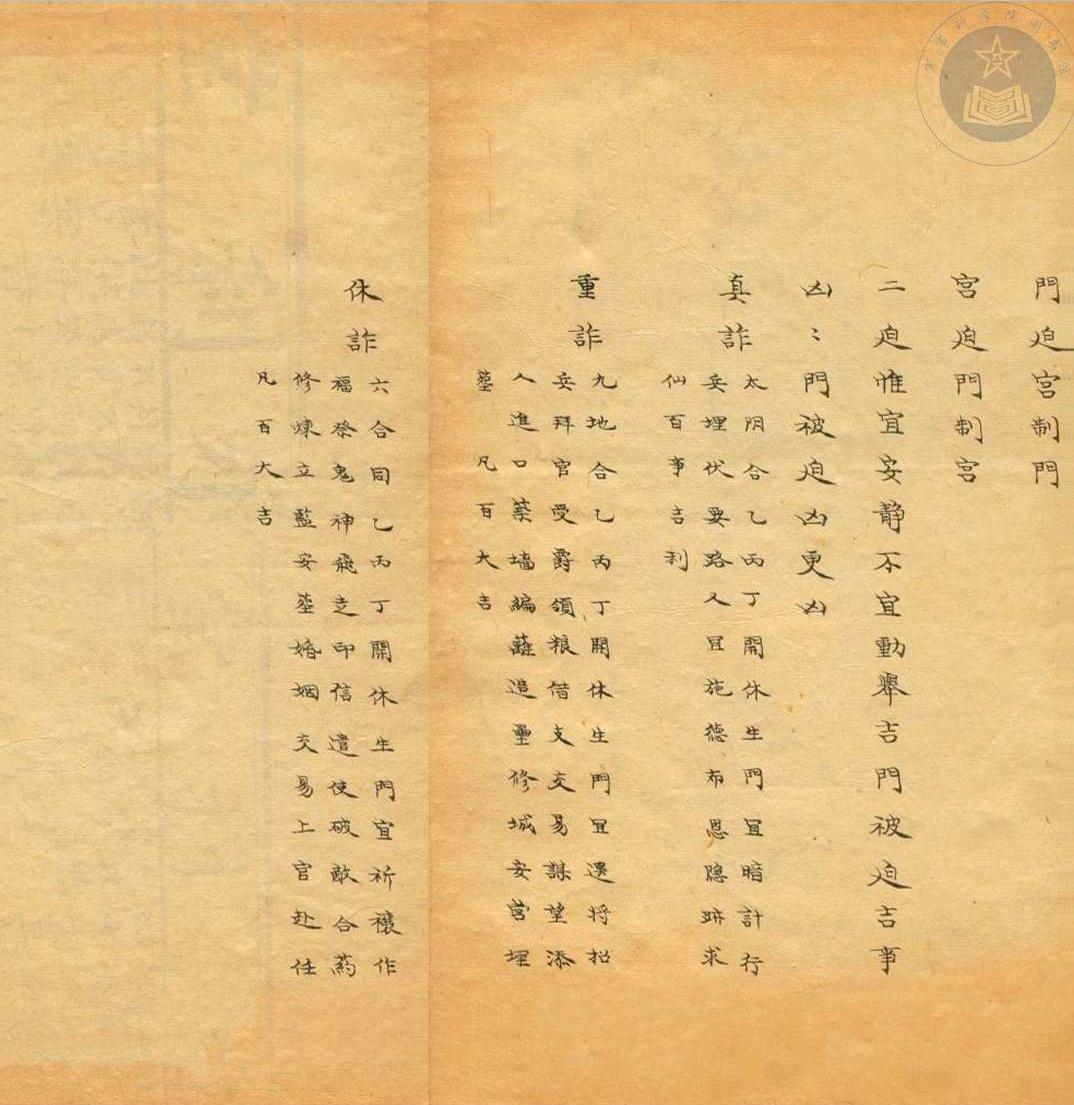 門迫宮制門
宮迫門制宮
二迫惟宜安靜不宜動舉吉門被迫吉事
凶〻門被迫凶更凶
真詐
太阴合乙丙丁開休生門宜暗計行
兵埋伏要路人宜施德布恩隱跡求
仙百事吉利
重詐
九地合乙丙丁開休生門宜选将招
兵拜官受爵領粮借支交易謀望添
人進口築墙編蘺造壘修城安营埋
塟凡百大吉
休詐
六合同乙丙丁開休生門宜祈禳作
福祭鬼神飛走印信遣使破敵合药
修煉立藍安塟婚姻交易上官赴任
凡百大吉